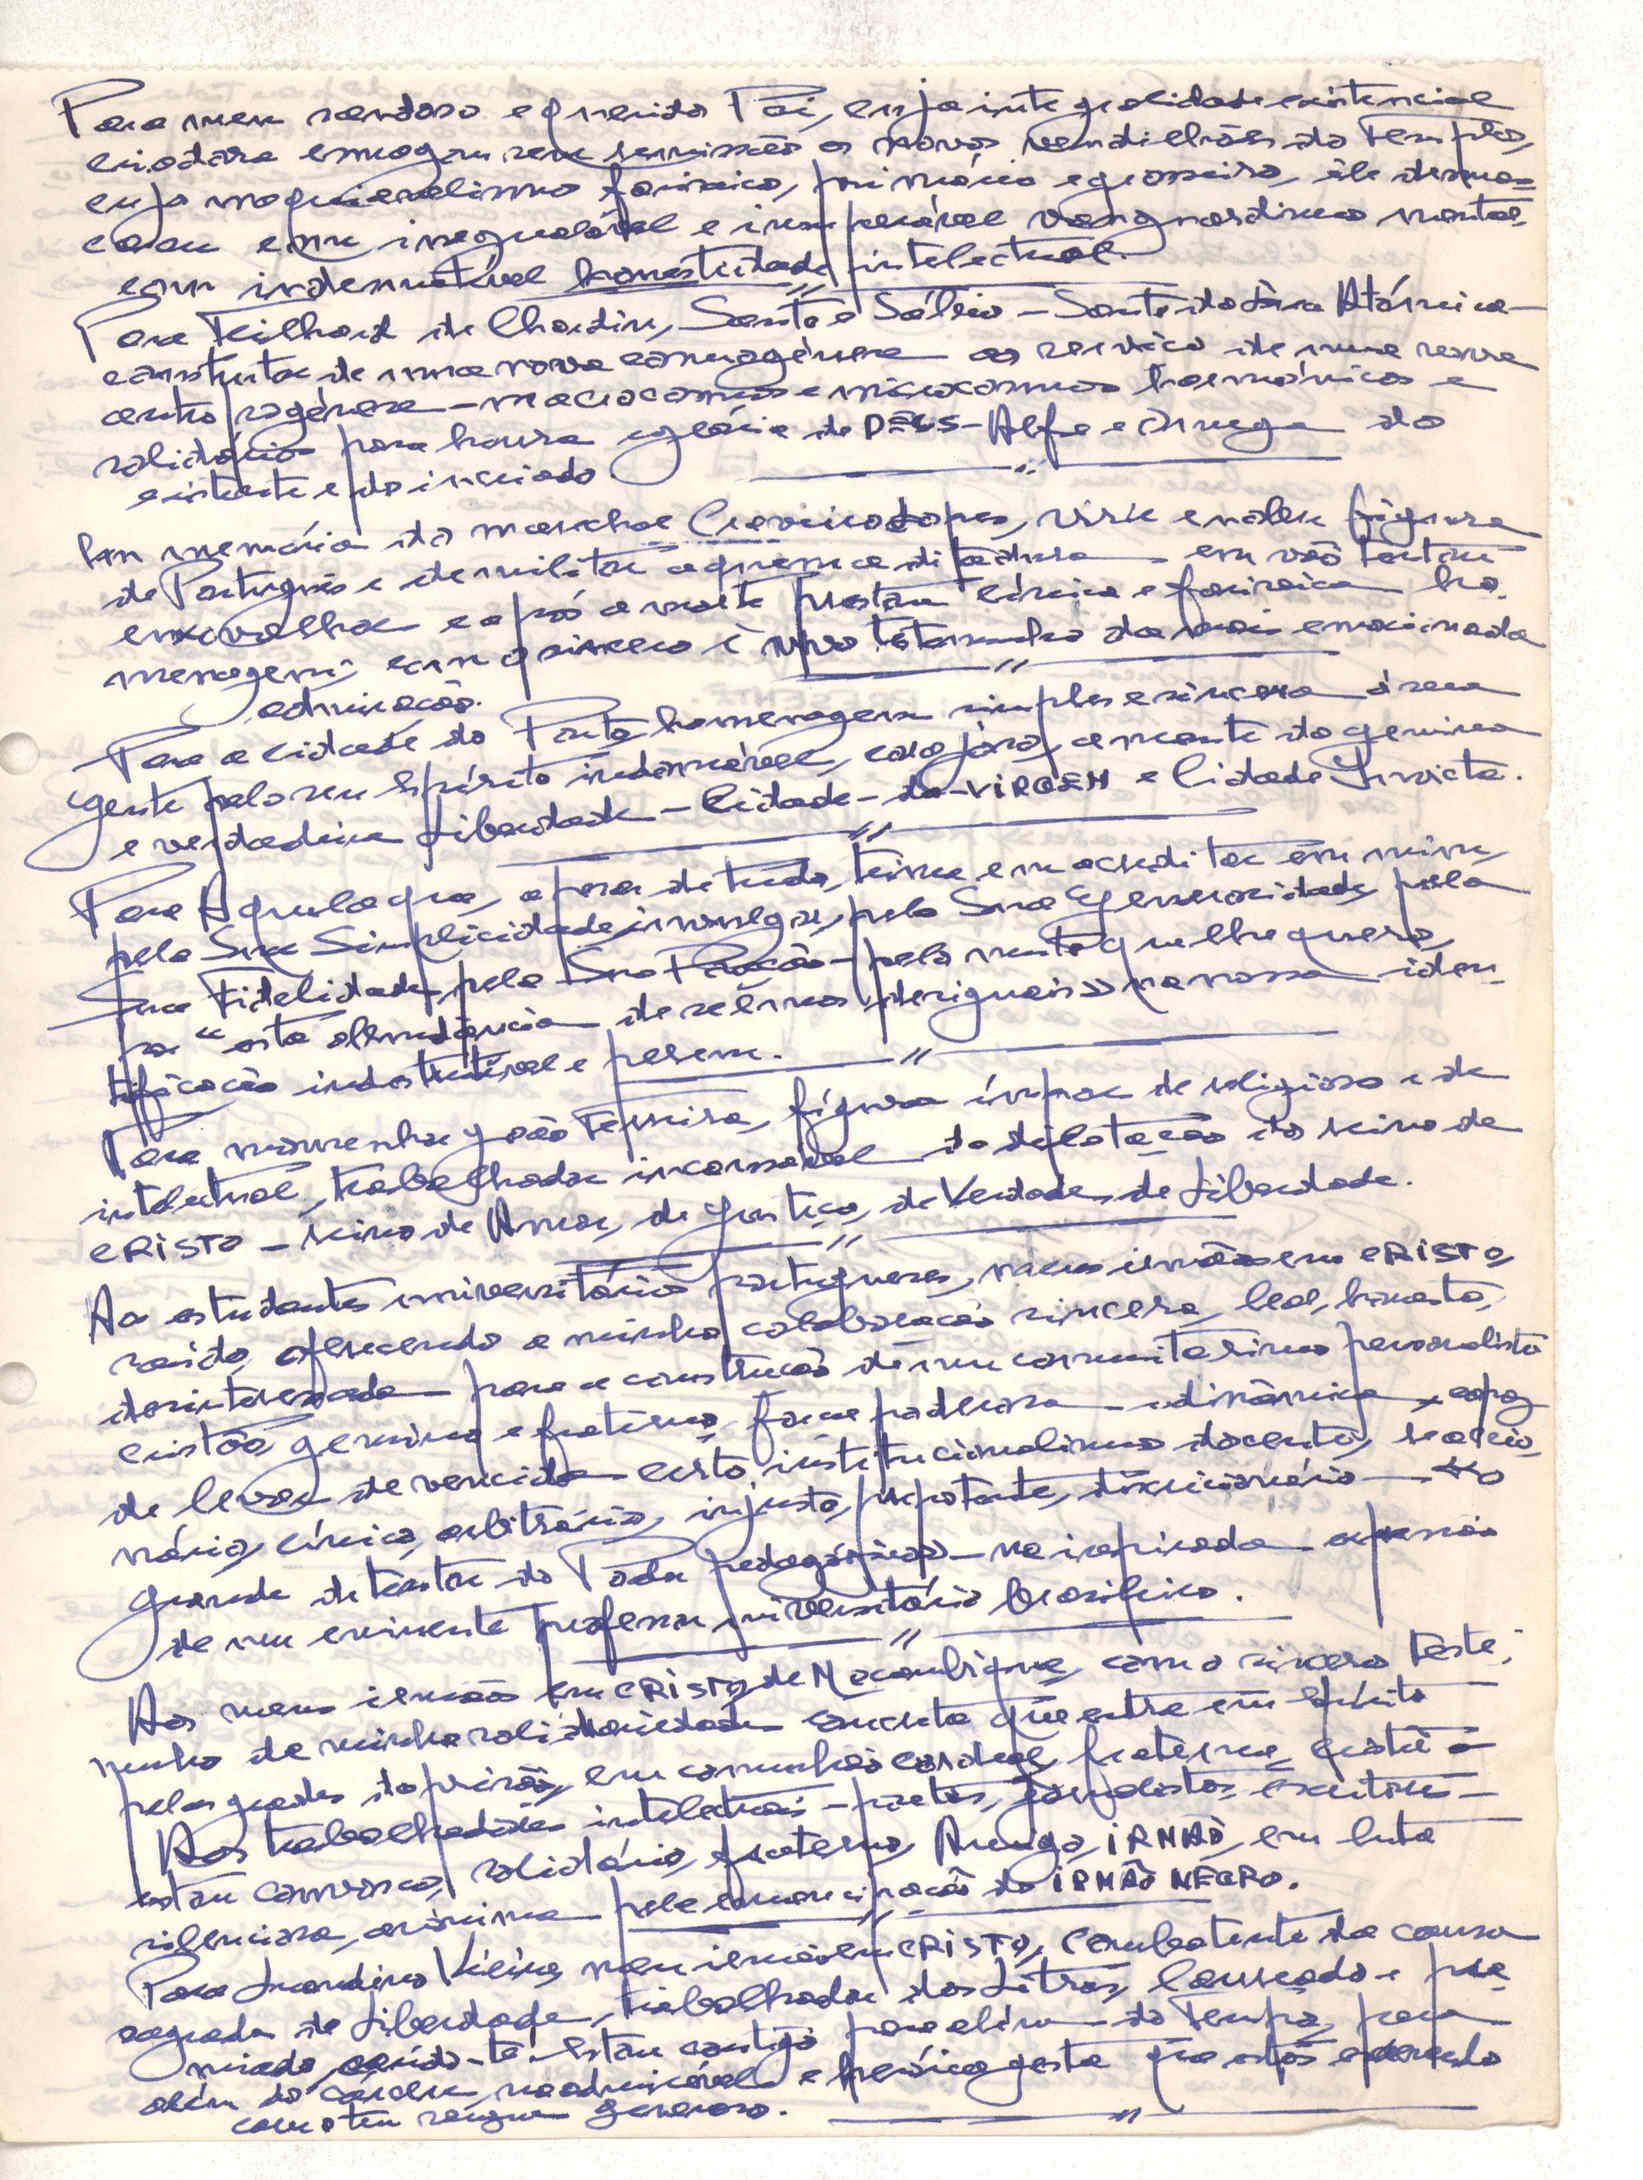 Para meu saudoso e querido Pai, cuja integralidade existencial
esmagou sem remissão os novos vendilhões do Templo,
cujo maquiavelismo farisaico, primário e grosseiro, êle desmas-
carou em inegualável e insuperável vanguardismo mental
com indesmentível honestidade intelectual.
Para Teilhard de Chardin, Santo e Sábio - Santo da Era Atómica -
construtor de uma nova cosmogénese ao serviço de uma nova
antropogénese - macrocosmos e microcosmos harmónicos e
solidários para honra e glória de DEUS - Alfa e Omega do
existente e do incriado.
Em memória do marechal Craveiro Lopes, viril e nobre figura
de Português e de militar a quem a ditadura em vão tentou
enxovalhar e após a morte prestou cínica e farisaica ho-
menagem, com o sincero e vivo testemunho da mais emocionada
admiração.
Para a cidade do Porto homenagem simples e sincera à sua
gente pelo seu Espírito indomável, corajoso, amante da genuina
e verdadeira Liberdade - Cidade - da - VIRGEM e Cidade Invicta.
Para Aquela que, apesar de tudo, teima em acreditar em mim,
pela Sua Simplicidade, pela Sua Generosidade, pela
Sua Fidelidade, pela Sua - pelo muito que lhe quero,
"esta de desiguais" na nossa iden-
tificação indestrutível e perene.
Para monsenhor João Ferreira, figura ímpar de religioso e de
intelectual, trabalhador incansável da dilatação do reino de
CRISTO - reino de Amor, de Justiça, de Verdade, de Liberdade.
Ao estudantes universitários portugueses, meus irmãos em CRISTO,
saúdo, oferecendo a minha colaboração sincera, leal, honesta,
desinteressada para a construção de um comunitarismo personalista
cristão genuino e fraterno, força poderosa e dinâmica, capaz
de levar de vencida certo institucionalismo docente, reaccio-
nário, cínico, arbitrário, injusto, prepotente, discricionário - "o
grande detentor do Poder pedagógico" - na inspirada expressão
de um eminente professor universitário brasileiro.
Aos meus irmãos em CRISTO, de Moçambique, com o sincero teste-
munho de minha solidariedade concreta que entre em Espírito
pelas grades da prisão, em comunhão cordeal, fraterna, cristã -
Aos trabalhadores intelectuais - poetas, jornalistas, escritores -
estou convosco, solidário, fraterno, Amigo, IRMÃO, em luta
silenciosa, anónima pela emancipação do IRMÃO NEGRO.
Para Luandino Vieira, meu irmão em CRISTO, Combatente da causa
sagrada da Liberdade, trabalhador das Letras, laureado e pre-
miado, saúdo-te. Estou contigo para além do Tempo, para
além do cárcere, na admirável e heróica gesta que estás escrevendo
com o teu sangue generoso.